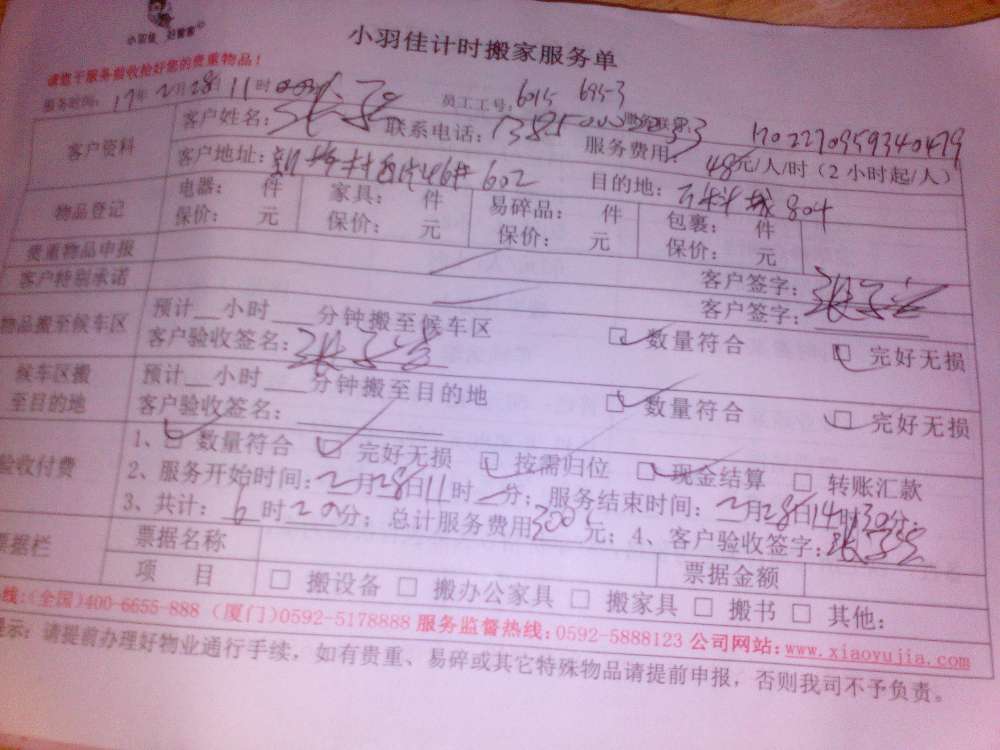 小羽佳 好管家
小羽佳计时搬家服务单
请您于服务前收拾好您的贵重物品!
服务时间: 17年2月28日11时 员工工号: 6015 6953
客户资料 客户姓名: 张 联系电话: 服务联系: 1702270959340479
服务费用: 48元/人/时(2小时起/人)
客户地址: 46# 602 目的地: 804
物品登记 电器: 件 家具: 件 易碎品: 件 包裹: 件
保价: 元 保价: 元 保价: 元 保价: 元
贵重物品申报 客户签字: 张
客户特别承诺 客户签字:
物品搬至候车区 预计__小时____分钟搬至候车区 □数量符合 □完好无损
客户验收签名: 张
候车区搬至目的地 预计__小时____分钟搬至目的地 □数量符合 □完好无损
客户验收签名:
验收付费 1、□数量符合 □完好无损 □按需归位 □现金结算 □转账汇款
2、服务开始时间: 2月28日11时__分; 服务结束时间: 2月28日14时30分.
3、共计: 6时20分; 总计服务费用 元; 4、客户验收签字: 张
票据栏 票据名称 票据金额
项 目 □搬设备 □搬办公家具 □搬家具 □搬书 □其他:
线:(全国)400-6655-888 (厦门)0592-5178888 服务监督热线: 0592-5888123 公司网站: www.xiaoyujia.com
提示: 请提前办理好物业通行手续, 如有贵重、易碎或其它特殊物品请提前申报, 否则我司不予负责。